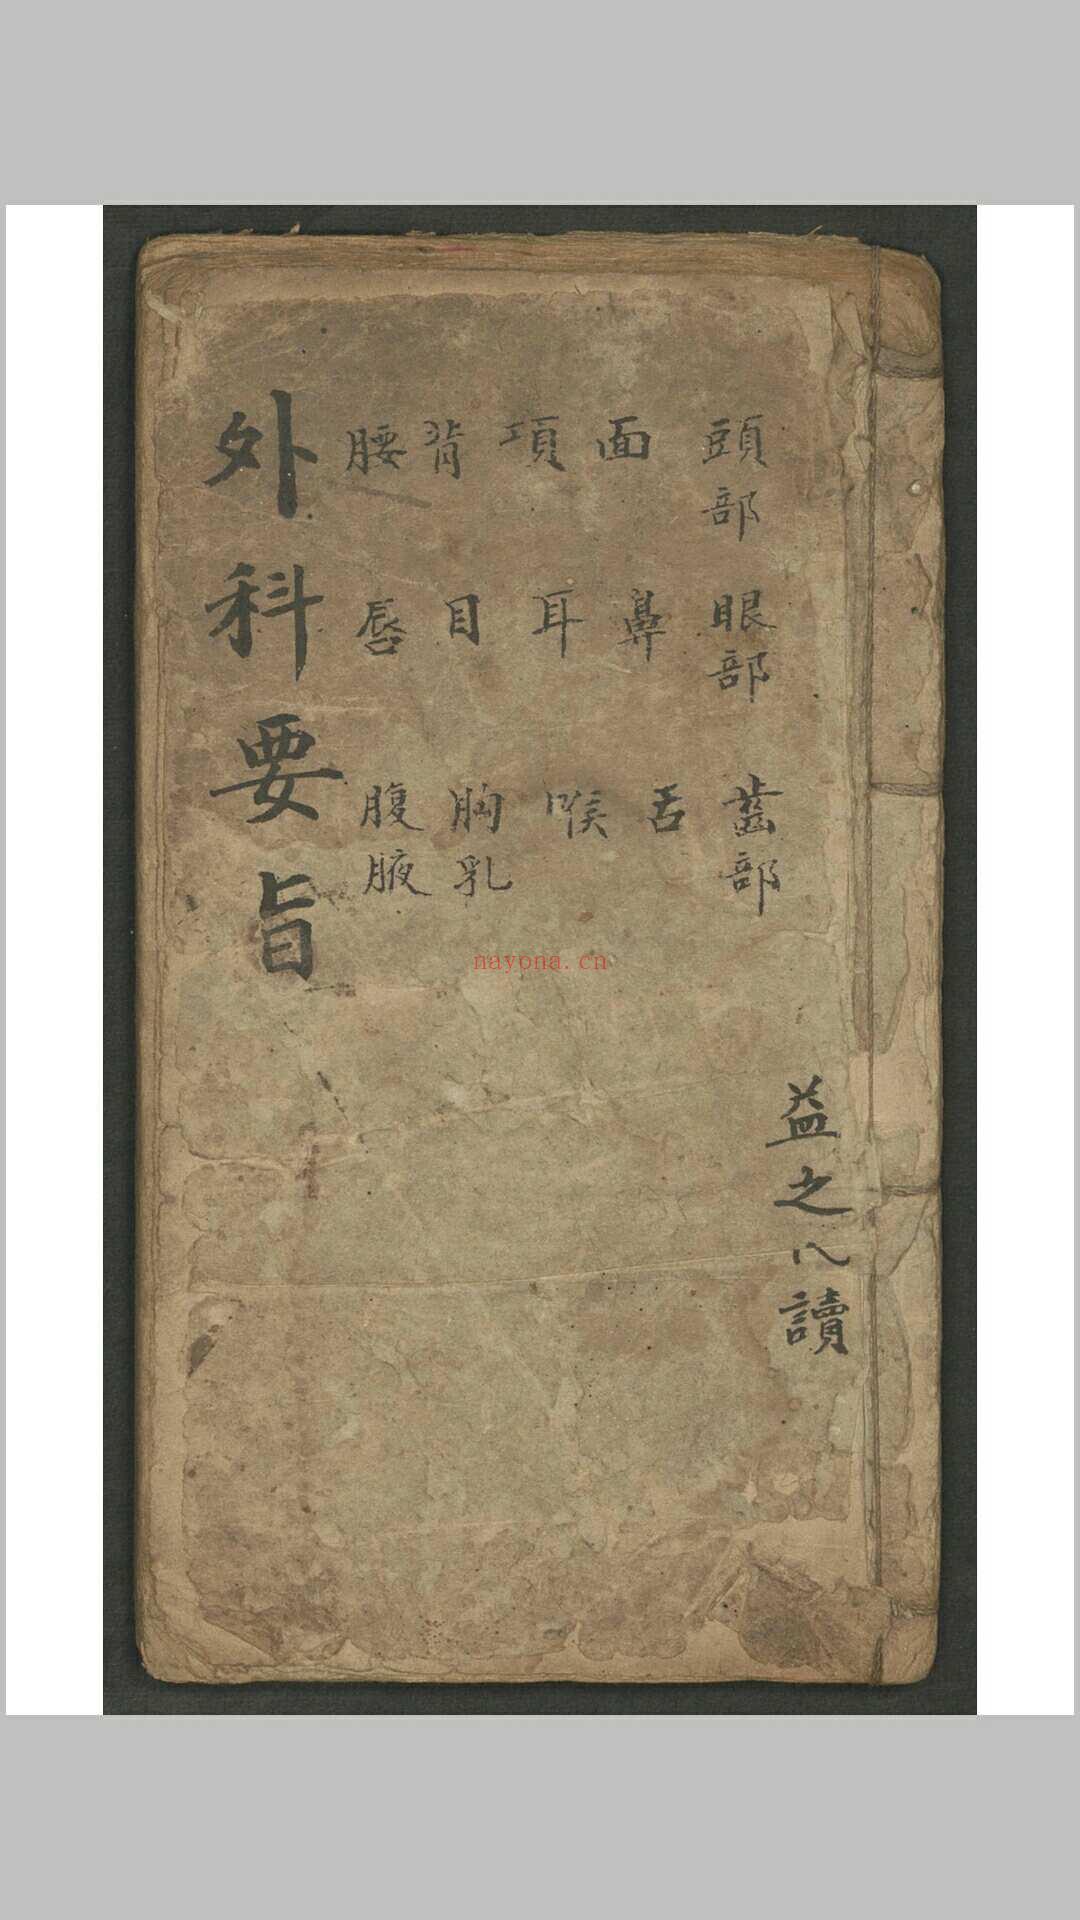 益之八讀
頭部 眼部 齒部
面 鼻 舌
項 耳 喉
背 目 胸乳
腰 唇 腹腋
外科要旨
nayona.cn